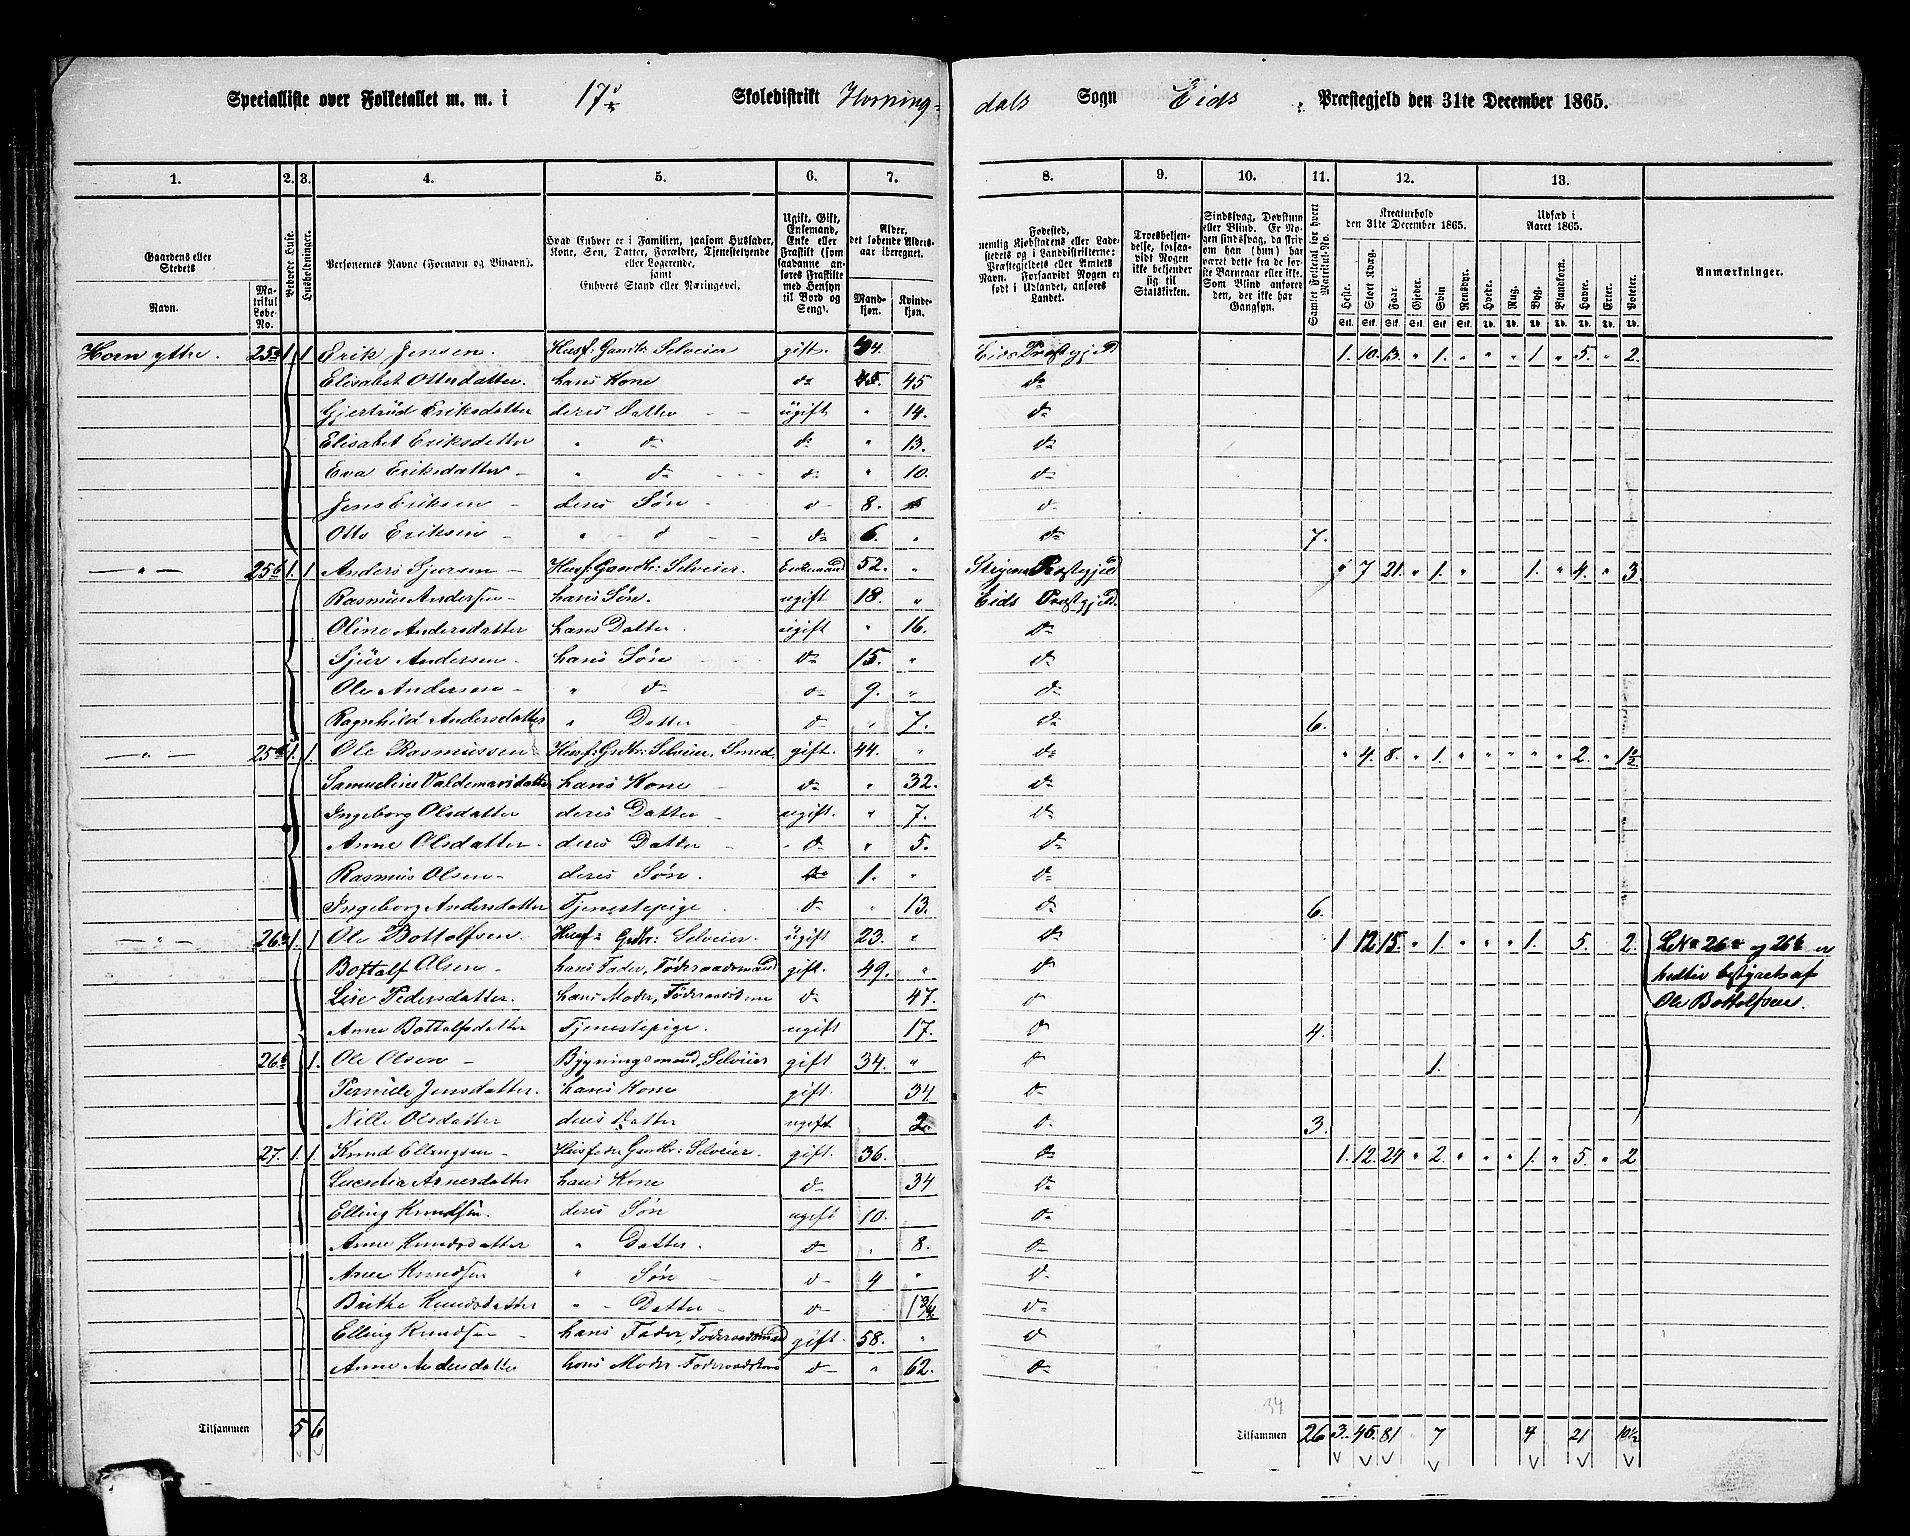 Specialliste over Folketallet m. m. i 17de Skoledistrikt Horning-
dals Sogn Eids Præstegjeld den 31te December 1865.
1. 2. 3. 4. 5. 6. 7. 8. 9. 10. 11. 12. 13.
Gaardens eller Stedets
Navn.
Matrikul Løbe-No.
Beboede Huse.
Husholdninger.
Personernes Navne (Fornavn og Tilnavn).
Hvad Enhver er i Familien, saasom Husfader, Kone, Søn, Datter, Forældre, Tjenestetyende eller Logerende, samt Enhvers Stand eller Næringsvei.
Ugift, Gift, Enkemand, Enke eller Fraskilt (som saadanne anføres Fraskilte med Hensyn til Bord og Seng).
Alder, det løbende Aldersaar iberegnet.
Mandkjøn. Kvindekjøn.
Fødested, nemlig Kjøbstadens eller Ladestedets og i Landdistrikterne: Præstegjeldets eller Amtets Navn. Forsaavidt Nogen er født i Udlandet, anføres Landet.
Troesbekjendelse, forsaavidt Nogen ikke bekjender sig til Statskirken.
Sindssvag, Døvstum eller Blind. Er Nogen sindssvag, da skrives om han (hun) har været dette fra de første Barneaar eller ikke. Som Blind anføres den, der ikke har Gangsyn.
Samlet Folketal for hvert Matrikul-No.
Kreaturhold den 31te December 1865.
Heste. Stort Kvæg. Faar. Gjeder. Svin. Rensdyr.
Udsæd i Aaret 1865.
Hvede. Rug. Byg. Blandkorn. Havre. Erter. Poteter.
Anmærkninger.
Horn yttre. 25a 1 1 Erik Jensen. Husf. Gaardbr. Selveier gift. 44. Eids Præstegjeld. 1. 10. 13. " 1. " " " 1 " 5. " 2.
Elisabet Ottersdatter. hans Kone do 45 do
Gjertrud Eriksdatter deres Datter ugift " 14. do
Elisabet Eriksdatter " do do " 13. do
Eva Eriksdatter " do do " 10. do
Jens Eriksen deres Søn do 8. do
Otto Eriksen " do do 6. " do 7.
— " — 25b 1. 1 Anders Sjursen Husf. Gaardbr. Selveier. Enkemand 52. " Præstegjeld " 7 21. " 1. " 1. " 4. " 3.
Rasmus Andersen hans Søn. ugift 18. " Eids Præstegjeld.
Oline Andersdatter hans Datter. ugift " 16. do
Sjur Andersen hans Søn do 15. " do
Ole Andersen " do do 9. " do
Ragnhild Andersdatter " Datter do " 7. do 6.
— " — 1. 1. Ole Rasmussen Husf. Grdbr. Selveier, Smed. gift. 44. " do " 4. 8. " 1. " " " " " 2. " 1½
Samueline Valdemarsdatter hans Kone do " 32. do
Ingeborg Olsdatter deres Datter ugift. " 7. do
Anne Olsdatter. deres Datter do " 5. do
Rasmus Olsen deres Søn. do 1. " do
Ingeborg Andersdatter Tjenestepige do " 13. do 6.
— " — 26a 1. 1 Ole Bottolfsen. Husf. Grdbr. Selveier. ugift 23. " do 1 12 15. " 1. " " " 1. 5. 2. LNo 26a og 26b er
Bottolf Olsen hans Fader, Føderaadsmand gift. 49. " do hedtil bestyret af
Lise Pedersdatter. hans Moder, Føderaadskone do 47. do Ole Bottolfsen.
Anne Bottolfsdatter Tjenestepige. ugift 17. do 4.
26b 1. Ole Olsen Bygningsmand, Selveier gift 34. " do 1.
Pernille Jensdatter. hans Kone gift. 34 do
Nille Olsdatter deres Datter ugift 2. do 3.
27. 1. 1. Knud Ellingsen Husfader Gaardbr. Selveier. gift. 36. do 1. 12. 24 " 2. " " " 1. " 5. " 2
Lucretia Arnesdatter hans Kone do 34 do
Elling Knudsen. deres Søn ugift 10. do
Anne Knudsdatter " Datter. do " 8. do
Arne Knudsen " Søn do 4 " do
Brithe Knudsdatter " Datter do 1¾ do
Elling Knudsen hans Fader, Føderaadsmand gift. 58. " do
Anne Andersdatter hans Moder Føderaadskone do " 62. do
34
Tilsammen 5 6 Tilsammen 26 3. 45. 81 7 4 21 10½